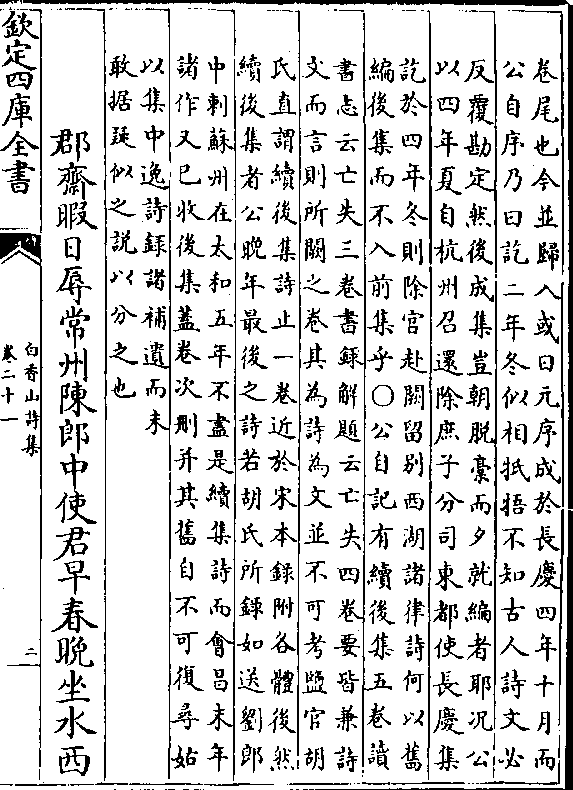 卷尾也今並歸入或曰元序成於長慶四年十月而
公自序乃曰訖二年冬似相牴牾不知古人詩文必
反覆勘定然後成集豈朝脫稾而夕就編者耶况公
以四年夏自杭州召還除庶子分司東都使長慶集
訖於四年冬則除官赴闕留別西湖諸律詩何以舊
編後集而不入前集乎○公自記有續後集五卷讀
書志云亡失三卷書録解題云亡失四卷要皆兼詩
文而言則所闕之卷其為詩為文並不可考盬官胡
氏直謂續後集詩止一卷近於宋本錄附各體後然
續後集者公晚年最後之詩若胡氏所錄如送劉郎
中刺蘇州在太和五年不盡是續集詩而會昌末年
諸作又已收後集蓋卷次刪并其舊自不可復尋姑
以集中逸詩録諸補遺而未
敢据疑似之説以分之也
郡齋暇日辱常州陳郎中使君早春晚坐水西
欽定四庫全書
白香山詩集
卷二十一
二